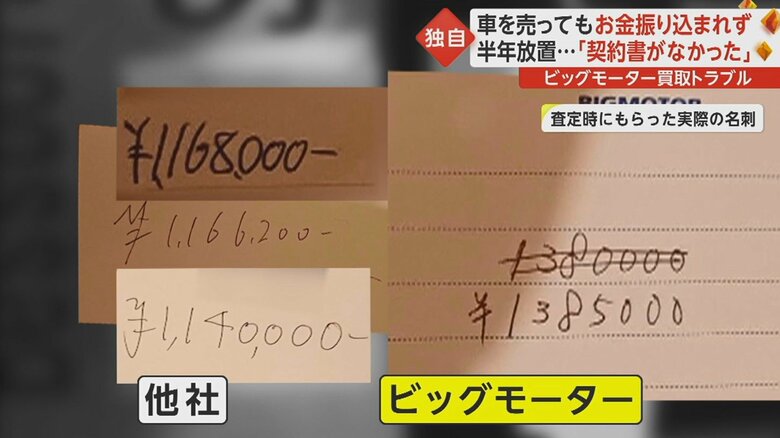 独自
車を売ってもお金振り込まれず
半年放置…「契約書がなかった」
ビッグモーター買取トラブル
BIGMOTOR
査定時にもらった実際の名刺
¥1,168,000-
¥1,166,200-
¥1,140,000-
1380000
¥1385000
他社
ビッグモーター